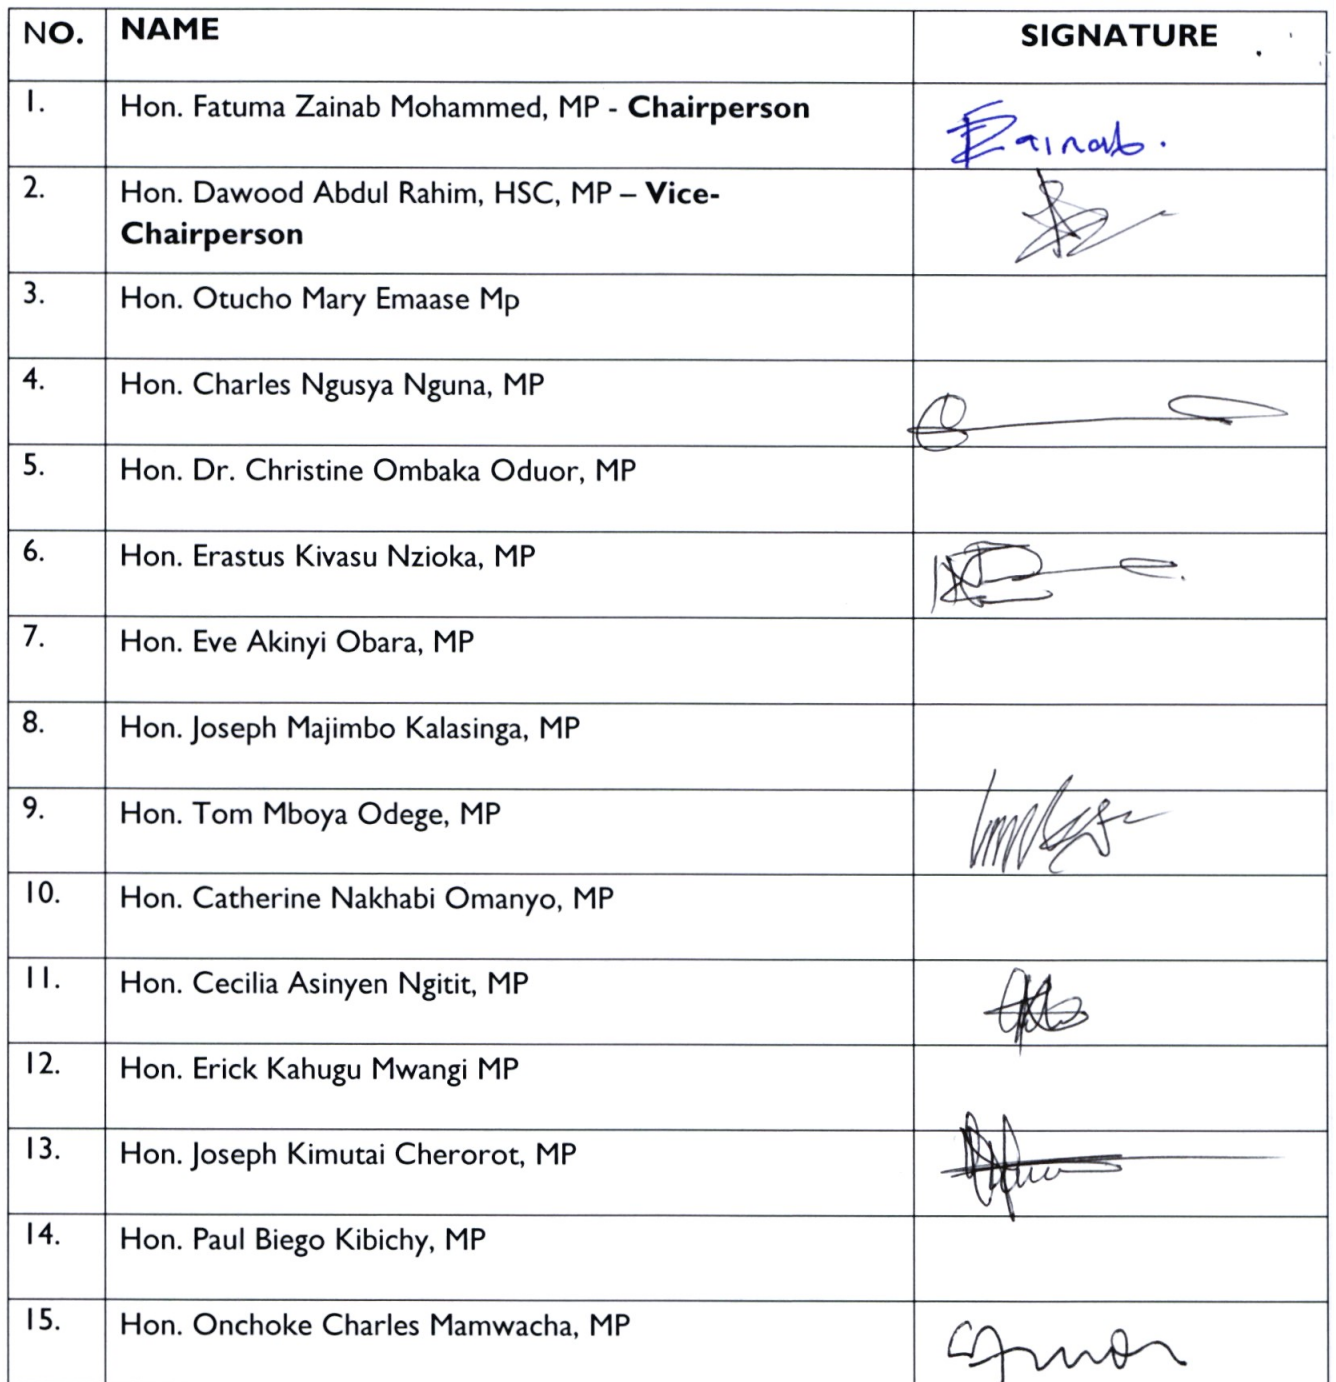 NO. NAME SIGNATURE
1. Hon. Fatuma Zainab Mohammed, MP - Chairperson Zainab.
2. Hon. Dawood Abdul Rahim, HSC, MP – Vice-
Chairperson
3. Hon. Otucho Mary Emaase Mp
4. Hon. Charles Ngusya Nguna, MP
5. Hon. Dr. Christine Ombaka Oduor, MP
6. Hon. Erastus Kivasu Nzioka, MP
7. Hon. Eve Akinyi Obara, MP
8. Hon. Joseph Majimbo Kalasinga, MP
9. Hon. Tom Mboya Odege, MP
10. Hon. Catherine Nakhabi Omanyo, MP
11. Hon. Cecilia Asinyen Ngitit, MP
12. Hon. Erick Kahugu Mwangi MP
13. Hon. Joseph Kimutai Cherorot, MP
14. Hon. Paul Biego Kibichy, MP
15. Hon. Onchoke Charles Mamwacha, MP